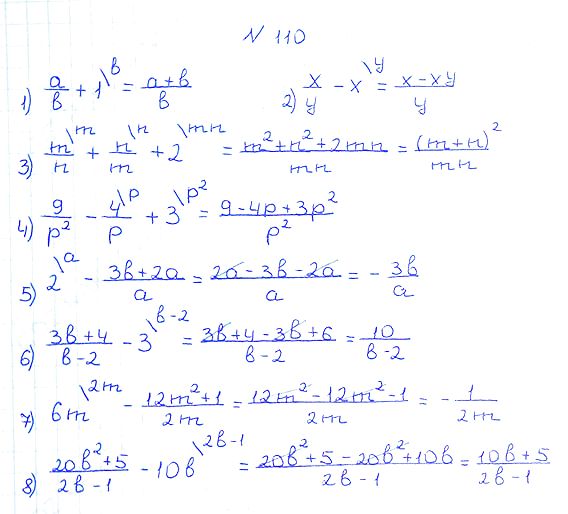 N 110
1) a/в + 1\в = (a+в)/в 2) x/y - x\y = (x-xy)/y
3) m/n\m + n/m\n + 2\mn = (m²+n²+2mn)/mn = (m+n)²/mn
4) 9/p² - 4/p\p + 3\p² = (9-4p+3p²)/p²
5) 2\a - (3в+2a)/a = (2a-3в-2a)/a = - 3в/a
6) (3в+4)/(в-2) - 3\в-2 = (3в+4-3в+6)/(в-2) = 10/(в-2)
7) 6m\2m - (12m²+1)/2m = (12m²-12m²-1)/2m = - 1/2m
8) (20в²+5)/(2в-1) - 10в\2в-1 = (20в²+5-20в²+10в)/(2в-1) = (10в+5)/(2в-1)